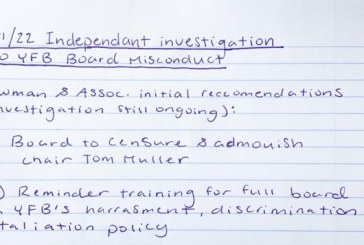 1/22 Independant investigation
YFB Board Misconduct
wman & Assoc. initial reccomendations
nvestigation still ongoing):
Board to Censure & admouish
chair Tom Muller
) Reminder training for full board
YFB's harrasment, discrimination
taliation policy